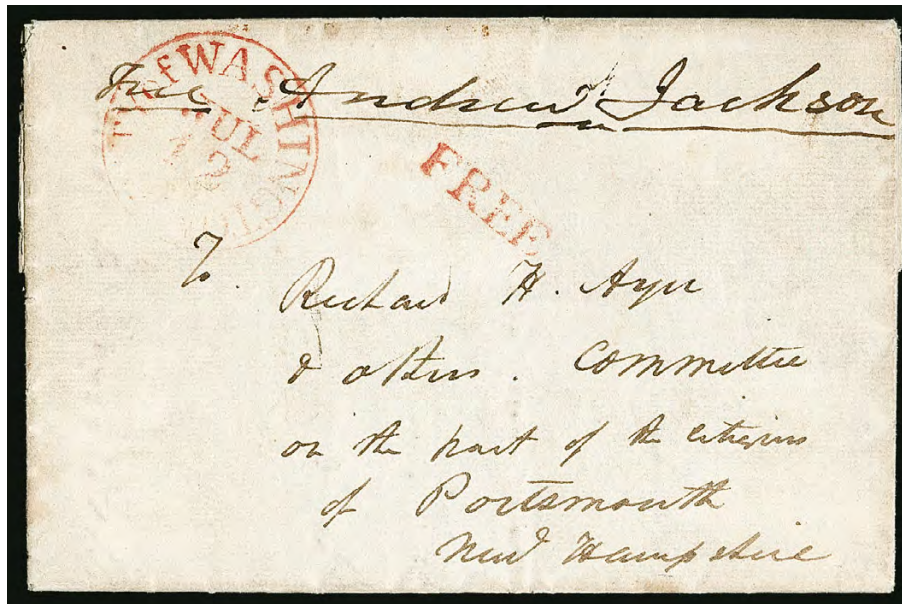 Free Andrew Jackson
CITY of WASHINGTON
JUL
12
FREE
To
Richard H. Ayer
& others. Committee
on the part of the citizens
of Portsmouth
New Hampshire